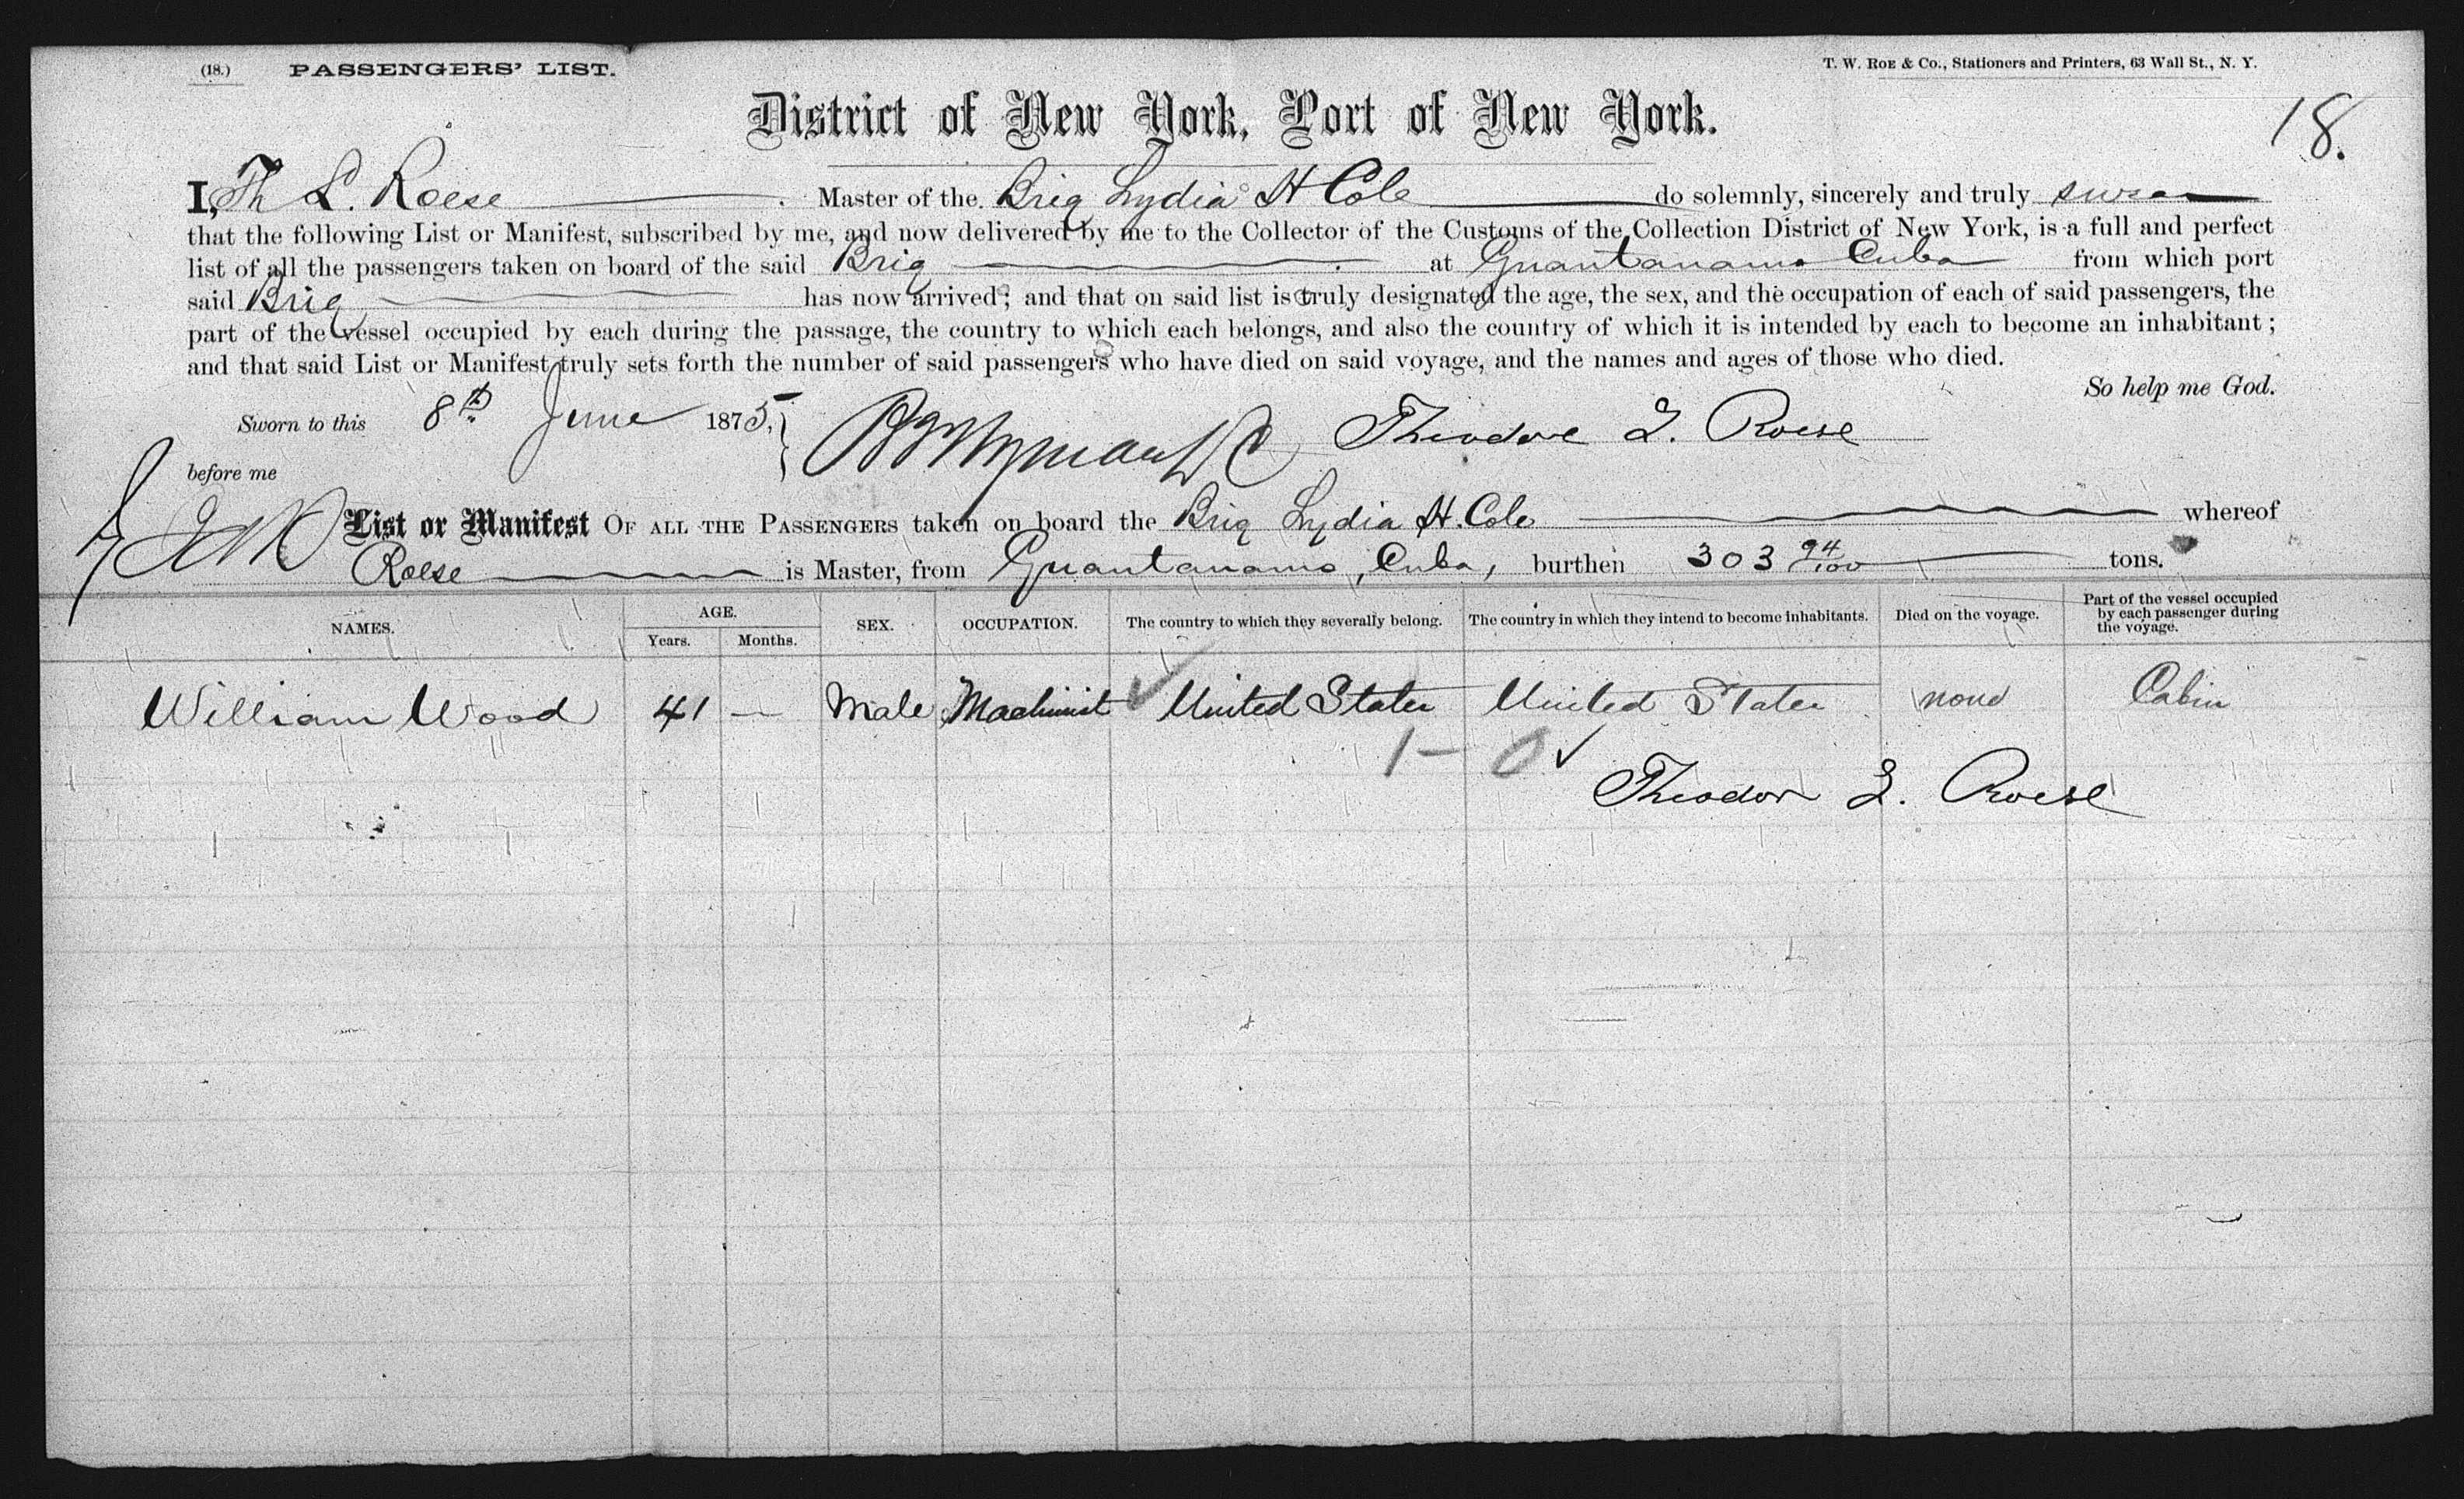 (18.) PASSENGERS' LIST.
T. W. ROE & Co., Stationers and Printers, 63 Wall St., N. Y.
District of New York, Port of New York.
18.
I, Th L. Roese Master of the Brig Lydia H Cole do solemnly, sincerely and truly swear
that the following List or Manifest, subscribed by me, and now delivered by me to the Collector of the Customs of the Collection District of New York, is a full and perfect
list of all the passengers taken on board of the said Brig at Guantanamo Cuba from which port
said Brig has now arrived; and that on said list is truly designated the age, the sex, and the occupation of each of said passengers, the
part of the vessel occupied by each during the passage, the country to which each belongs, and also the country of which it is intended by each to become an inhabitant;
and that said List or Manifest truly sets forth the number of said passengers who have died on said voyage, and the names and ages of those who died.
So help me God.
Sworn to this 8th June 1875, Theodore L. Roese
before me
List or Manifest OF ALL THE PASSENGERS taken on board the Brig Lydia H. Cole whereof
Roese is Master, from Guantanamo, Cuba, burthen 303 94/100 tons.
NAMES. AGE. Years. Months. SEX. OCCUPATION. The country to which they severally belong. The country in which they intend to become inhabitants. Died on the voyage. Part of the vessel occupied by each passenger during the voyage.
William Wood 41 — Male Machinist ✓ United States United States none Cabin
1 – 0 ✓
Theodor L. Roese